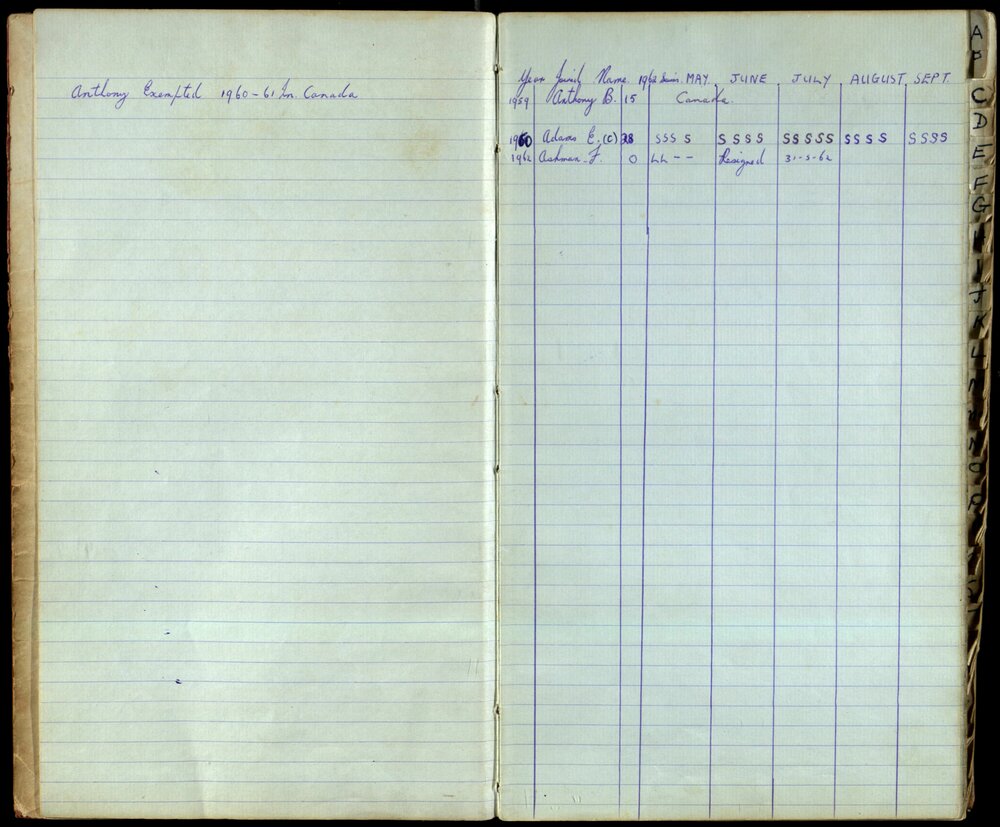 Anthony Exempted 1960-61 In Canada
Year Joined Name. 1962 MAY. JUNE JULY AUGUST SEPT
1959 Anthony B. 15 Canada.
1960 Adams E. (C) 28 SSS S S S S S S S S S S S S S S S S S S
1962 Ashman F. 0 LL -- Resigned 31-5-62
A
C
D
E
F
G
H
I
J
K
L